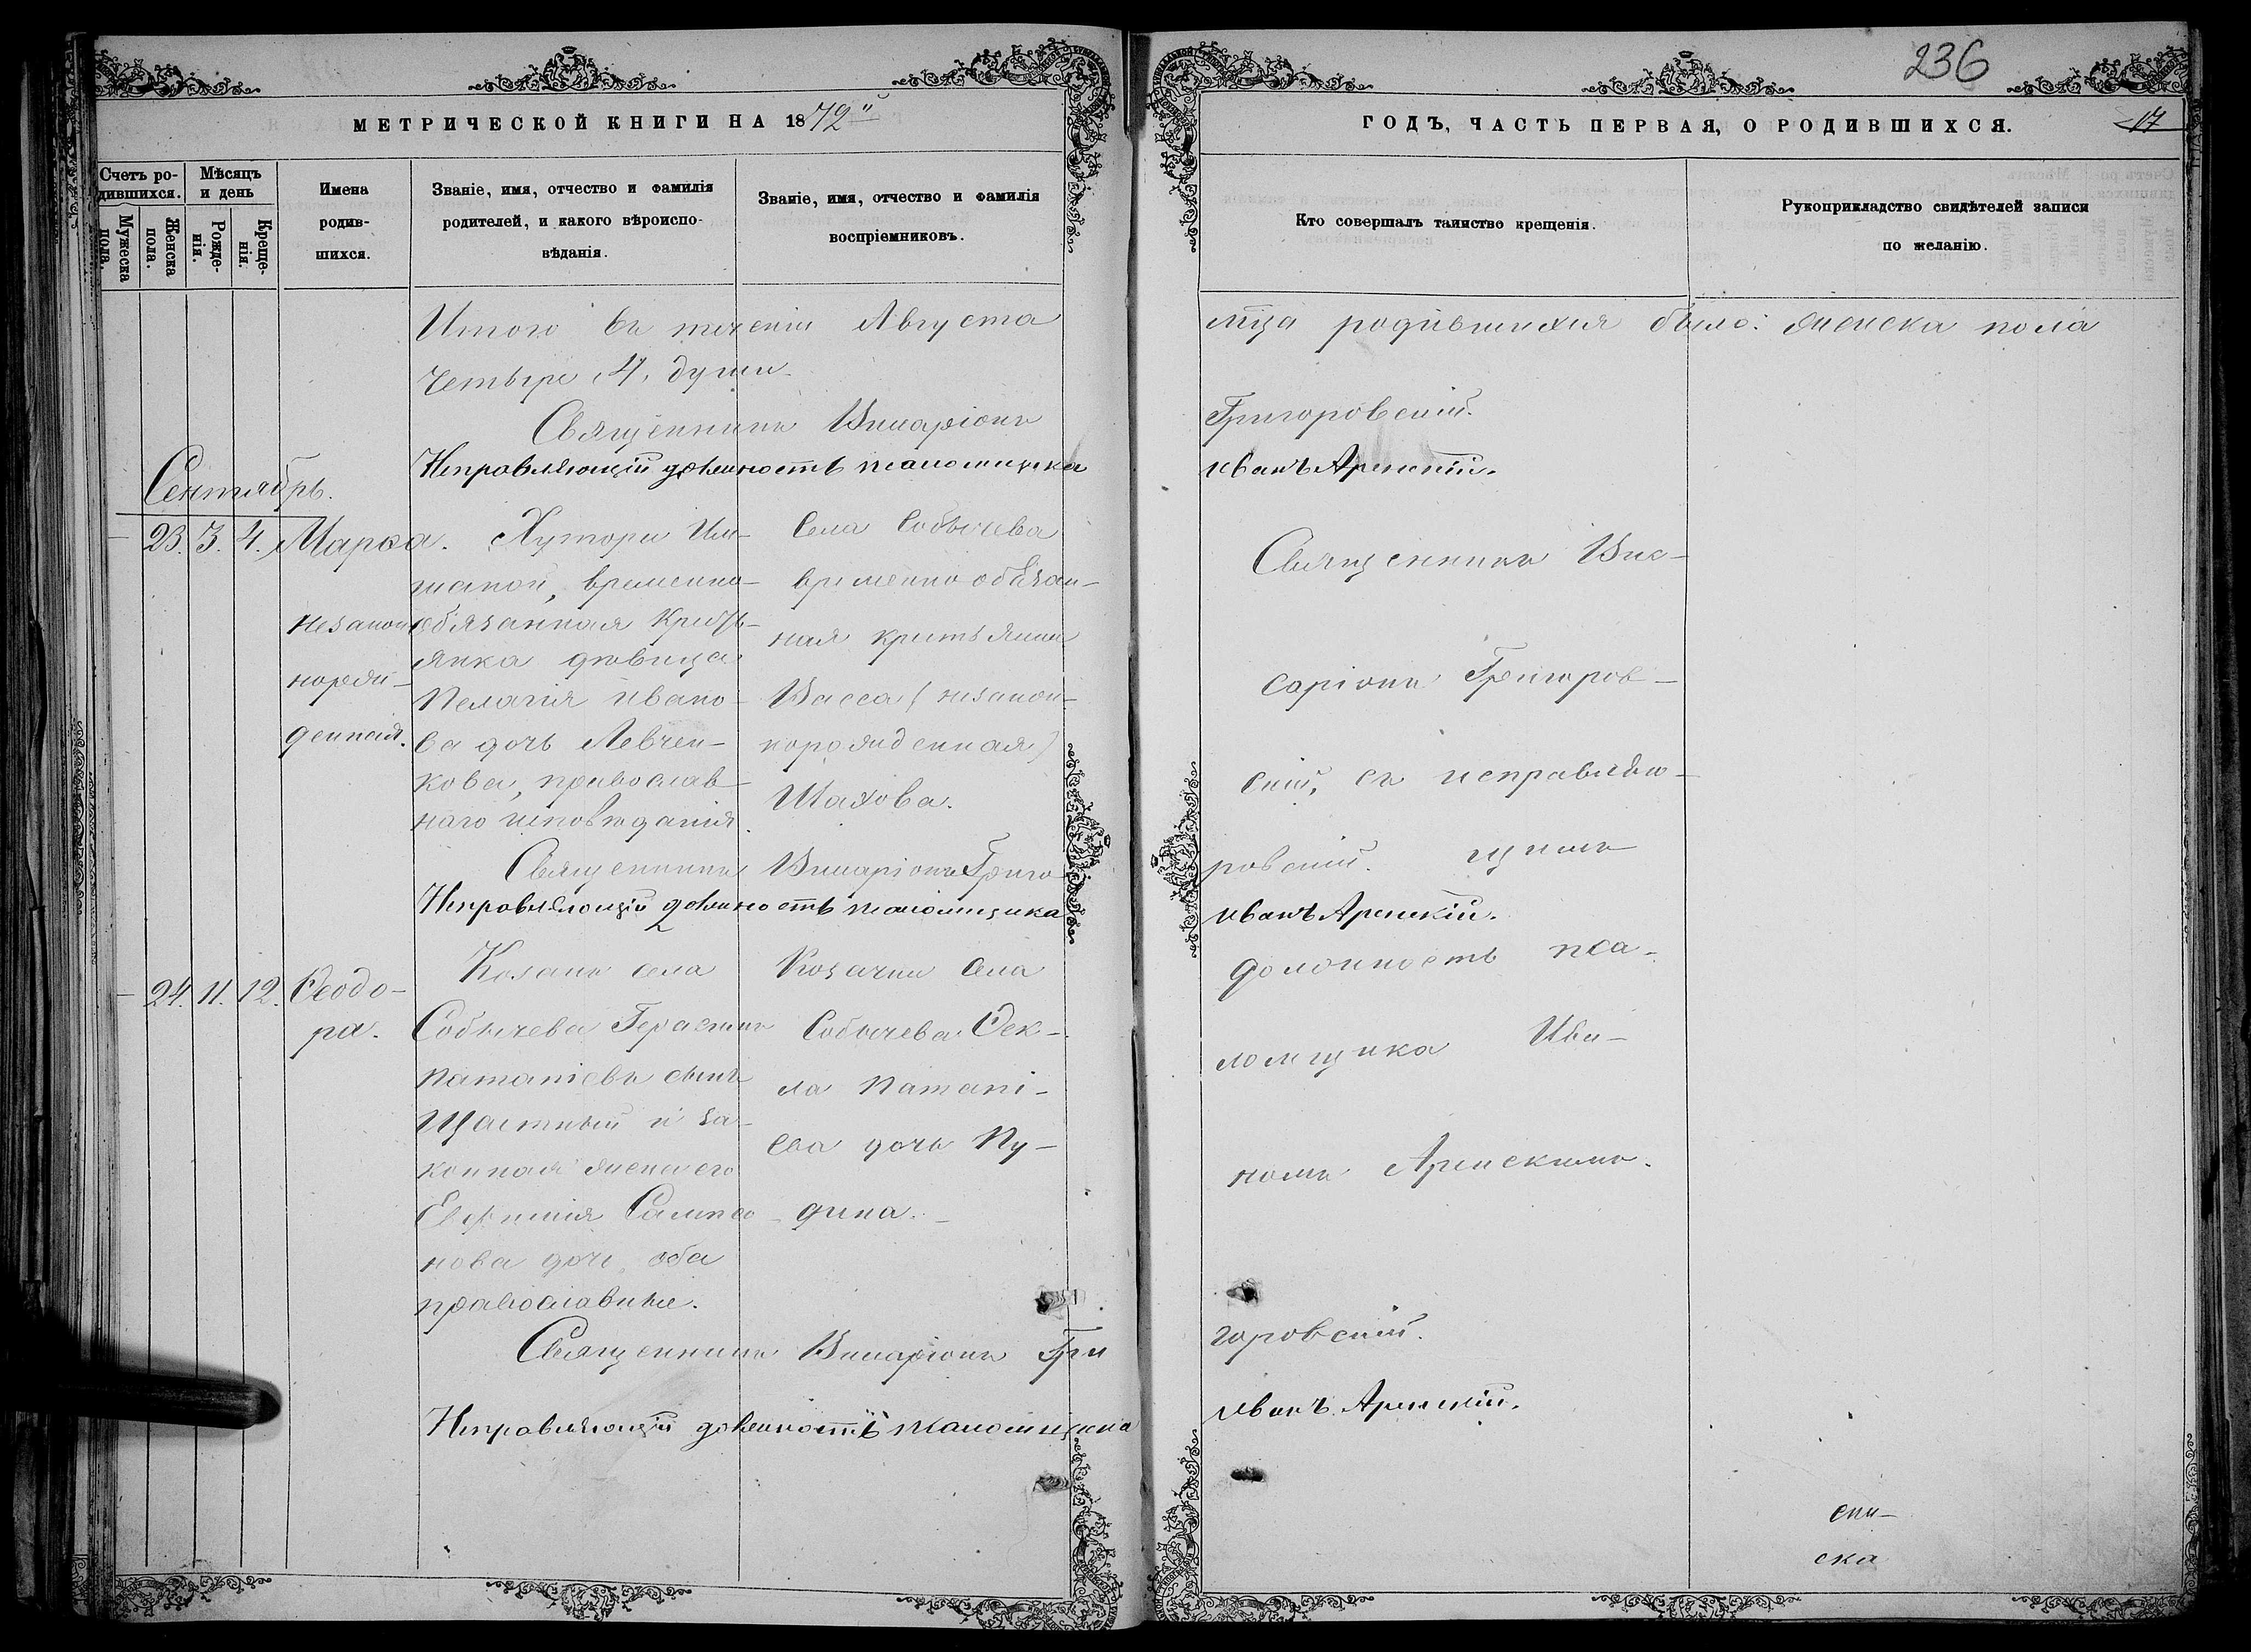 236
МЕТРИЧЕСКОЙ КНИГИ НА 1872
ГОДЪ, ЧАСТЬ ПЕРВАЯ, О РОДИВШИХСЯ.
17
Счетъ ро-
дившихся.
Мѣсяцъ
и день
Мужеска
пола.
Женска
пола.
Рожде-
нія.
Креще-
нія.
Имена
родив-
шихся.
Званіе, имя, отчество и фамилія
родителей, и какого вѣроиспо-
вѣданія.
Званіе, имя, отчество и фамилія
воспріемниковъ.
Кто совершалъ таинство крещенія.
Рукоприкладство свидѣтелей записи
по желанію.
Итого въ теченіи Августа мца родившихся было: женска пола
Четыре, 4, души.
Священникъ Виссаріонъ Григоровскій.
Исправляющій должность псаломщика Иванъ Аренскій.
Сентябрь.
23. 3. 4. Марѳа.
незакон
норож-
денная.
Хутора
временно-
обязанная кресть-
янка дѣвица
Пелагія Ивано-
ва дочь Левчен-
кова, православ-
наго исповѣданія.
Села Собычева
временно обязан-
ная крестьянка
Васса (незакон-
норожденная)
Шахова.
Священникъ Вис-
саріонъ Григоров-
скій, съ исправляю-
щимъ
должность пса-
ломщика Ива-
номъ Аренскимъ.
Священникъ Виссаріонъ Григо
ровскій.
Исправляющій должность псаломщика Иванъ Аренскій.
24. 11. 12. Ѳеодо-
ра.
Козакъ села
Собычева Герасимъ
Патапіевъ сынъ
Щастный и за-
конная жена его
Евфимія Сампсо
нова дочь, оба
православные.
Козачка села
Собычева Ѳек-
ла Патапі-
ева дочь Пу-
дина.
Священникъ Виссаріонъ Гри
горовскій.
Исправляющій должность псаломщика Иванъ Аренскій.
ска